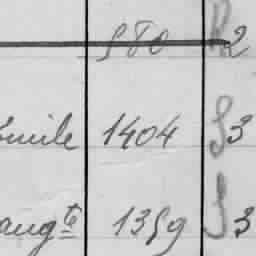 980 R 2
Emile 1404 S 3
augte 1359 S 3